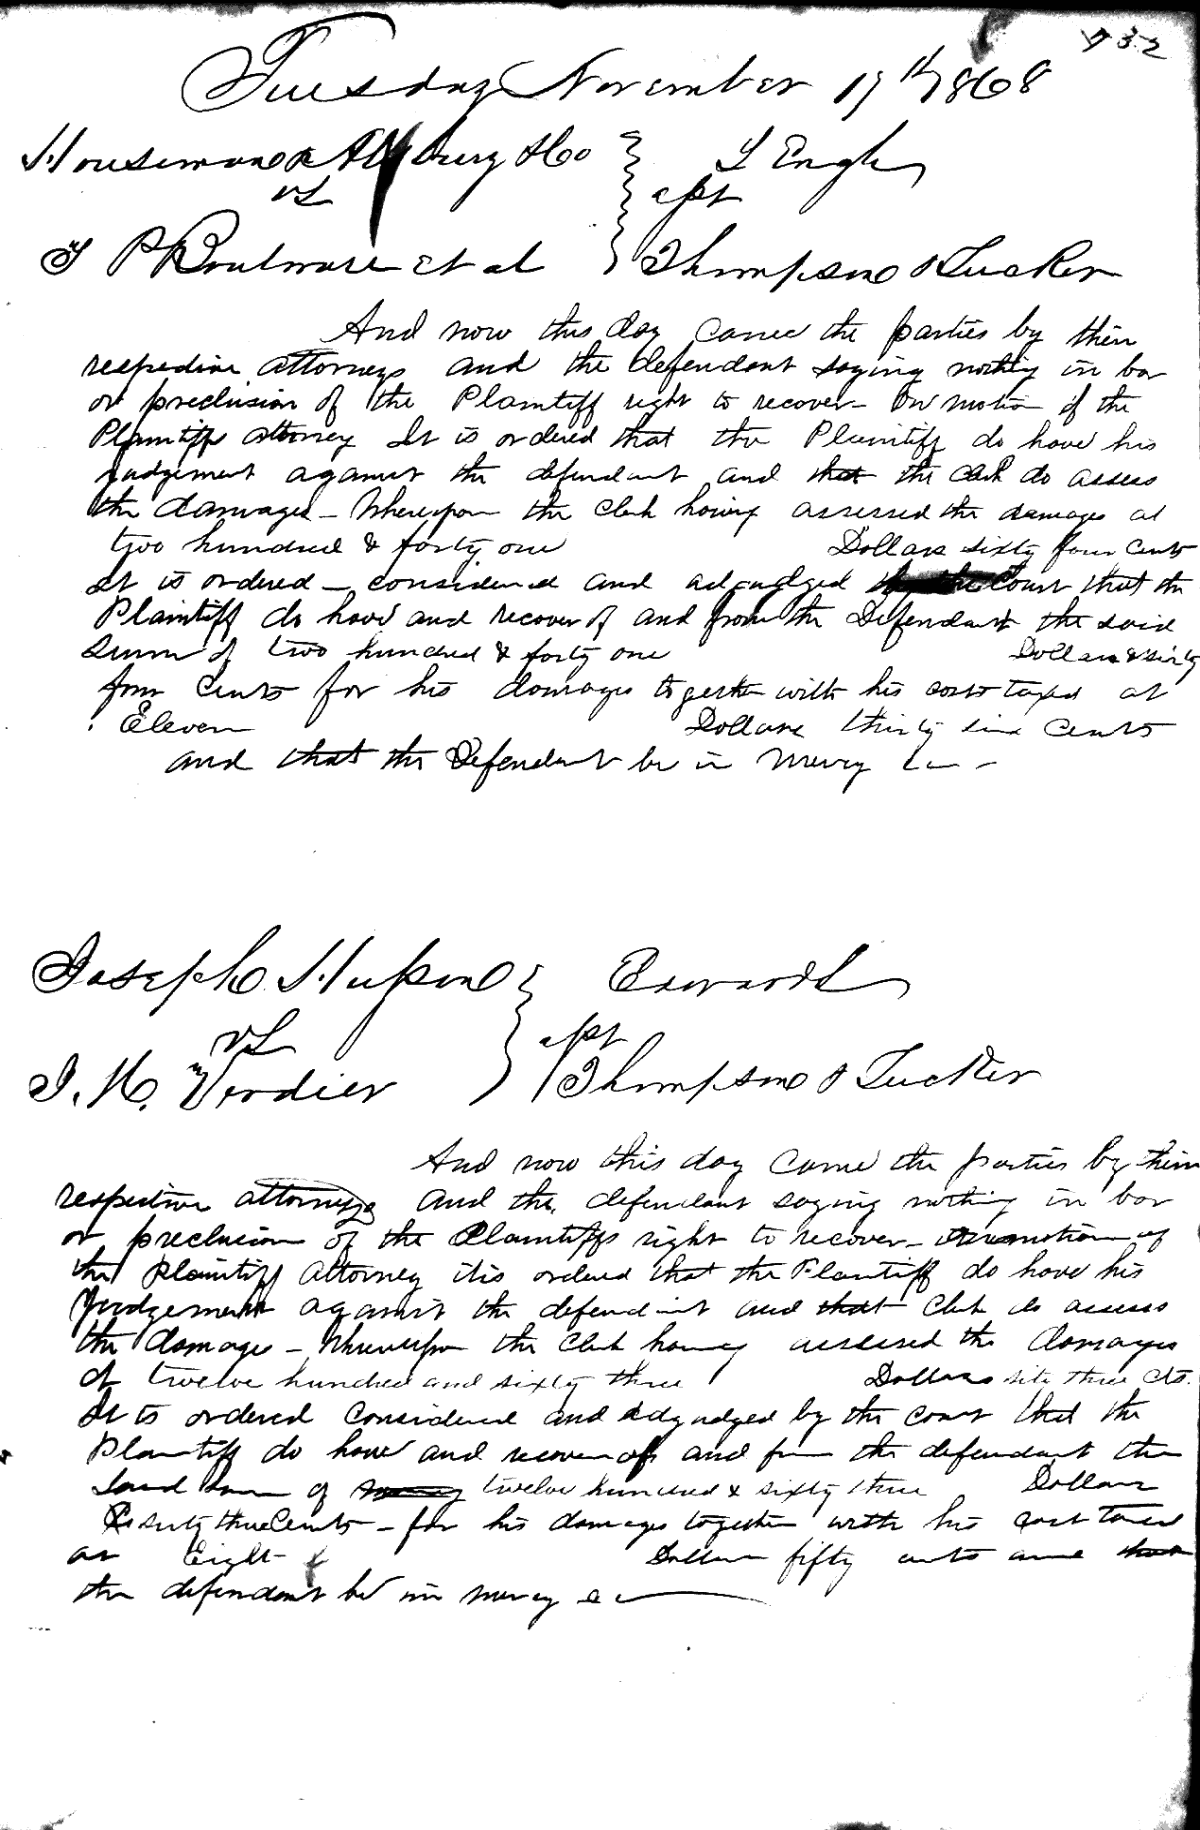 732
Tuesday November 17th 1868
Houseman & Co
vs
T P Boulware et al
L Engle
apt
Thompson & Tucker
And now this day came the parties by their
respective attorneys and the defendant saying nothing in bar
or preclusion of the Plaintiff right to recover - On motion of the
Plaintiffs attorney It is ordered that the Plaintiff do have his
judgement against the defendant and that the Clerk do assess
the damages - Whereupon the Clerk having assessed the damages at
two hundred & forty one Dollars sixty four cents
It is ordered - considered and adjudged by the Court that the
Plaintiff do have and recover of and from the Defendant the said
Sum of two hundred & forty one Dollars & sixty
four Cents for his damages together with his costs taxed at
Eleven Dollars thirty five Cents
and that the Defendant be in mercy &c -
Joseph
vs
J. H. Verdier
Edwards
apt
Thompson & Tucker
And now this day came the parties by their
respective attorneys and the defendant saying nothing in bar
or preclusion of the Plaintiffs right to recover - on motion of
the Plaintiff attorney it is ordered that the Plantiff do have his
Judgement against the defendant and that Clerk do assess
the damages - Whereupon the Clerk having assessed the damages
at twelve hundred and sixty three Dollars three cts.
It is ordered considered and adjudged by the court that the
Plaintiff do have and recover of and from the defendant the
said sum of twelve hundred & sixty three Dollars
& sixty three Cents - for his damages together with his cost taxed
at Eight & Dollars fifty cents and that
the defendant be in mercy &c